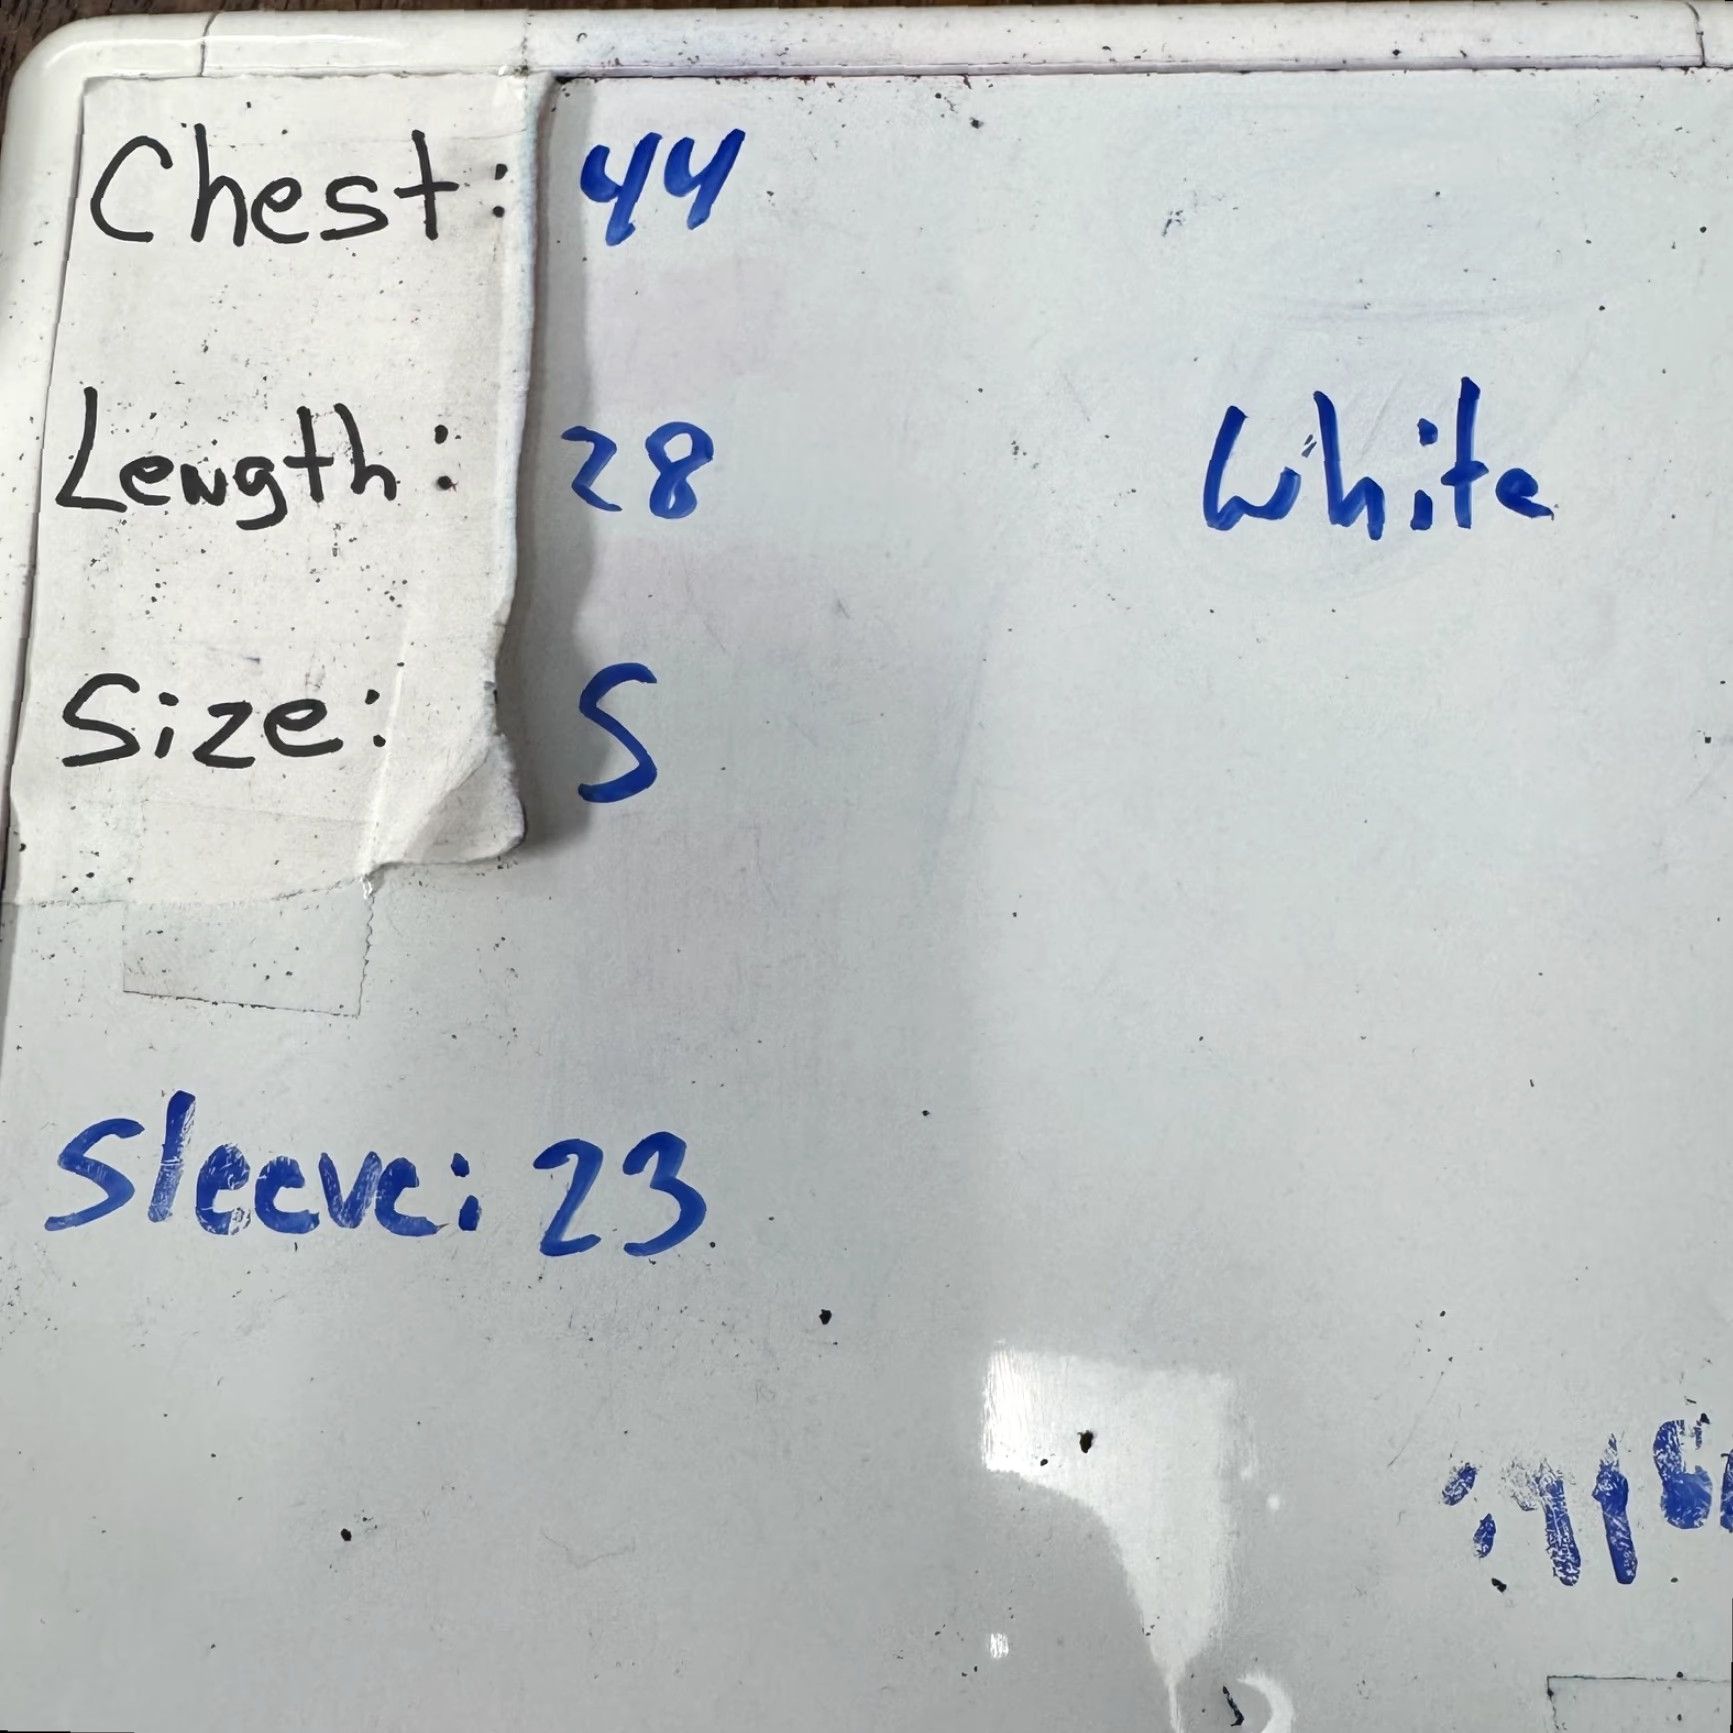 Chest: 44
Length: 28
White
Size: S
Sleeve: 23